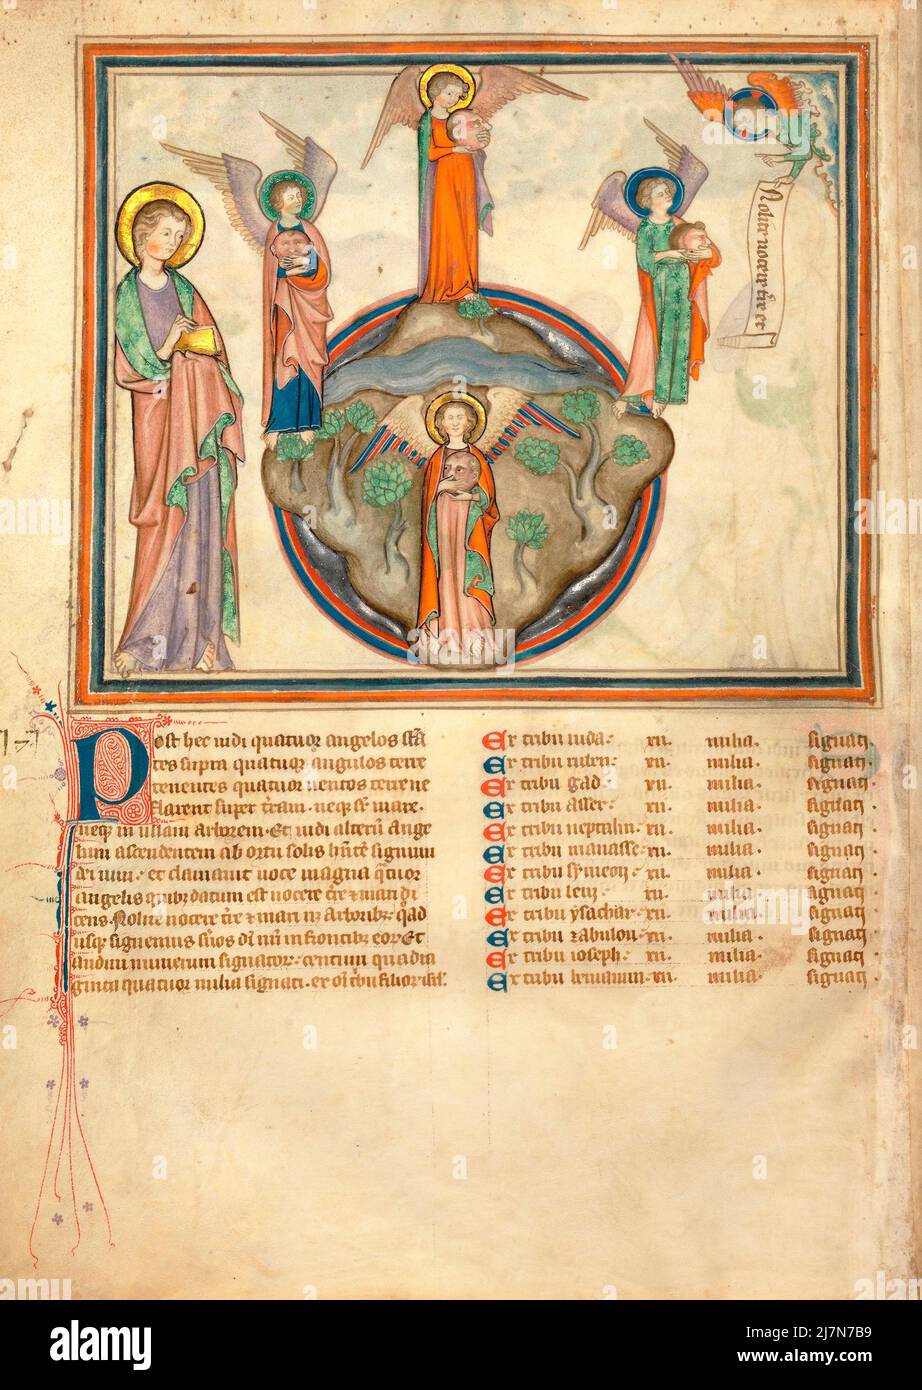 Nolite nocere t̄re et
Post hec uidi quatuor angelos stā
tes supra quatuor angulos terre
tenentes quatuor uentos terre ne
flarent super t̄ram. neqꝫ sr̄ mare.
neqꝫ in ullam arborem. Et uidi alterū ange
lum ascendentem ab ortu solis hn̄te signum
dei uiui. et clamauit uoce magna q̄tuor
angelis quibꝫ datum est nocere t̄re et mari di
cens. Nolite nocere t̄re et mari neqꝫ arboribꝫ. q̄ad
usqꝫ signemus s̄uos dī nr̄i in frontibꝫ eoꝝ. Et
audiui numerum signatoꝝ. centum quadra
ginta quatuor milia signati. ex om̄i tribu filioꝝ isrl̄.
Ex tribu iuda. xii. milia. signati.
Ex tribu ruben. xii. milia. signati.
Ex tribu gad. xii. milia. signati.
Ex tribu asser. xii. milia. signati.
Ex tribu neptalin. xii. milia. signati.
Ex tribu manasse. xii. milia. signati.
Ex tribu symeon. xii. milia. signati.
Ex tribu leui. xii. milia. signati.
Ex tribu ysachar. xii. milia. signati.
Ex tribu zabulon. xii. milia. signati.
Ex tribu ioseph. xii. milia. signati.
Ex tribu beniamin. xii. milia. signati.
alamy
Image ID: 2J7N7B9
www.alamy.com